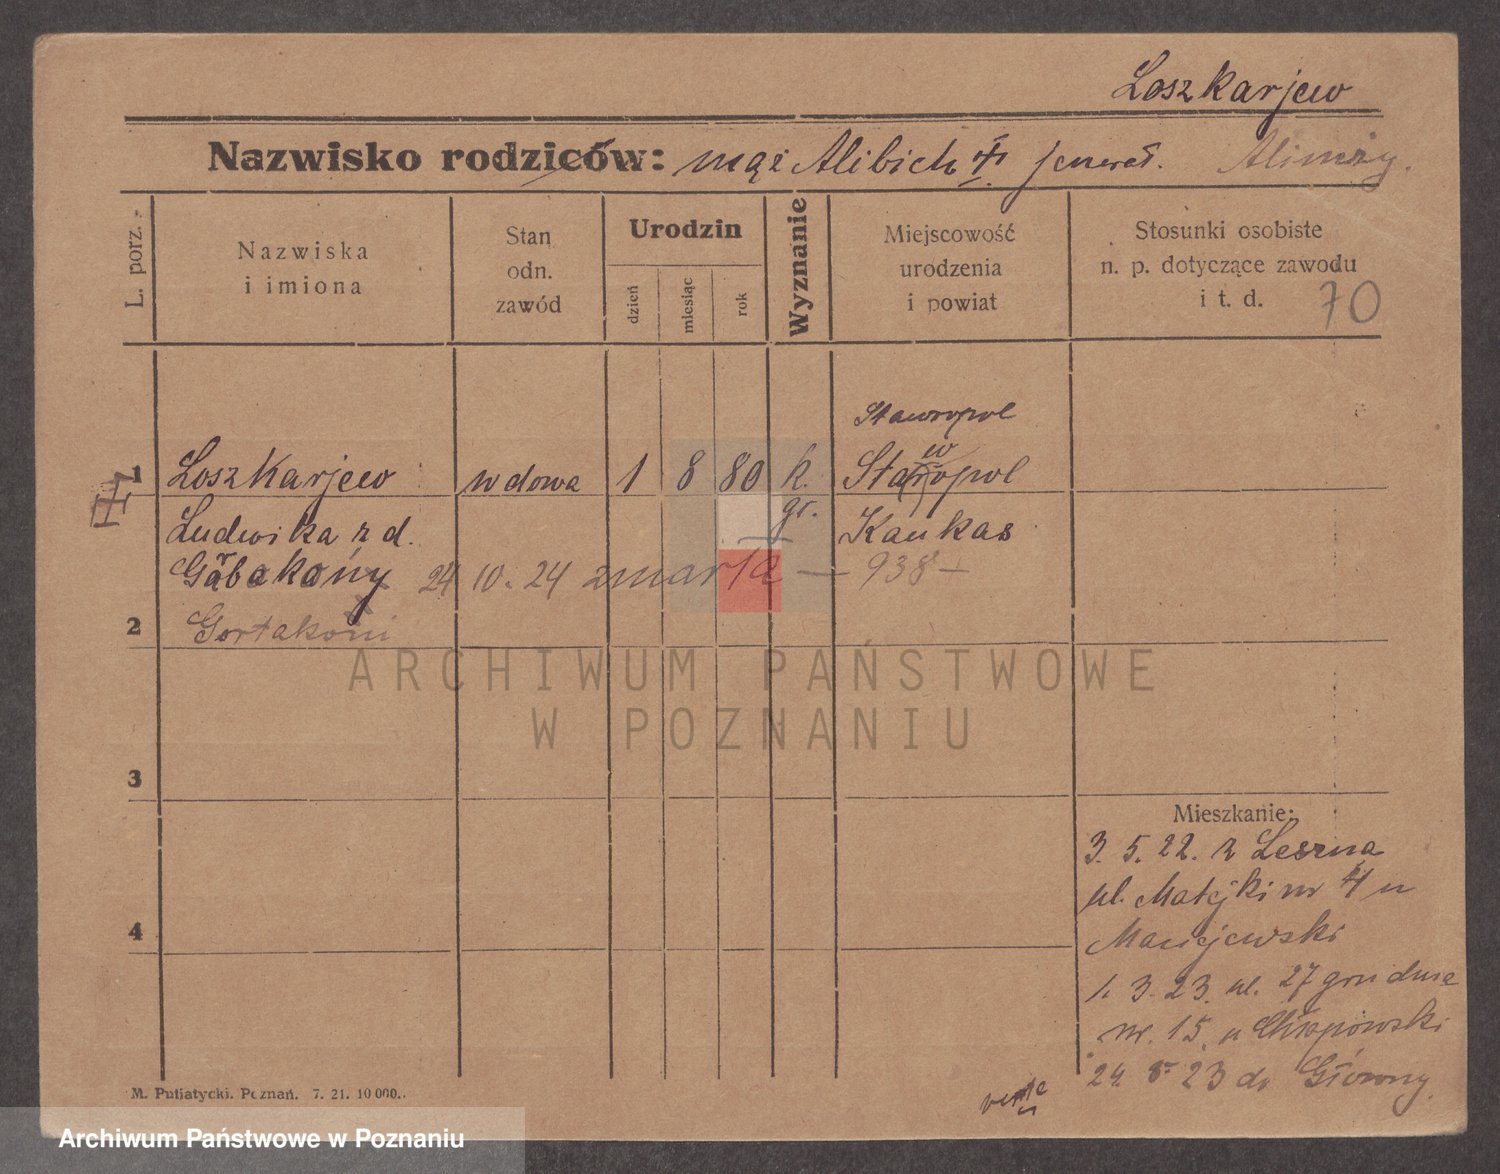 Loszkarjew
Nazwisko rodziców: mąż Alibich jenerał. Alimrzy.
L. porz.
Nazwiska
i imiona
Stan
odn.
zawód
Urodzin
dzień
miesiąc
rok
Wyznanie
Miejscowość
urodzenia
i powiat
Stosunki osobiste
n. p. dotyczące zawodu
i t. d.
70
Stawropol
1 Loszkarjew wdowa 1 8 80 k. Staropol
w
gr.
Ludwika z d. Kaukas
24 10. 24 zmarła — 938 —
2
3
4
Mieszkanie:
3. 5. 22. z Leszna
ul. Matejki nr 41 u
Maciejewski
1. 3. 23. ul. 27 grudnia
nr. 15. u Chłapowski
24. 8. 23 do
verte
M. Putiatycki. Poznań. 7. 21. 10000.
ARCHIWUM PAŃSTWOWE
W POZNANIU
Archiwum Państwowe w Poznaniu